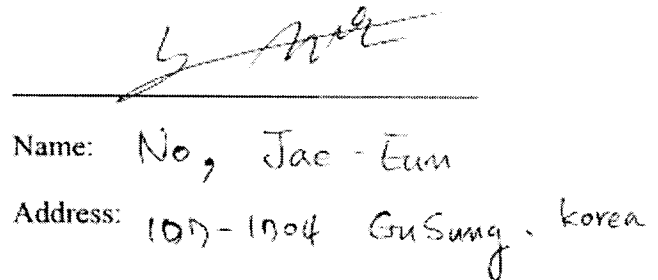 Name: No, Jae-Eun
Address: 107-1704 GuSung. korea